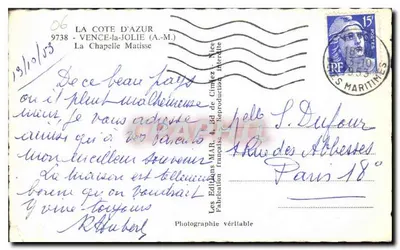 06
LA COTE D'AZUR
9738 - VENCE-la-JOLIE (A.-M.)
La Chapelle Matisse
19/10/53
De ce beau pays
où il pleut malheureuse
ment, je vous adresse
ainsi qu'à vos parents
mon meilleur souvenir
La maison est tellement
bonne qu'on voudrait
y vivre toujours
R Hubert
Les Editions MAR
Fabrication française
Reproduction interdite
Nice
15F
RF
S MARITIMES
Melle S. Dufour
Rue des Abbesses
Paris 18e
Photographie véritable